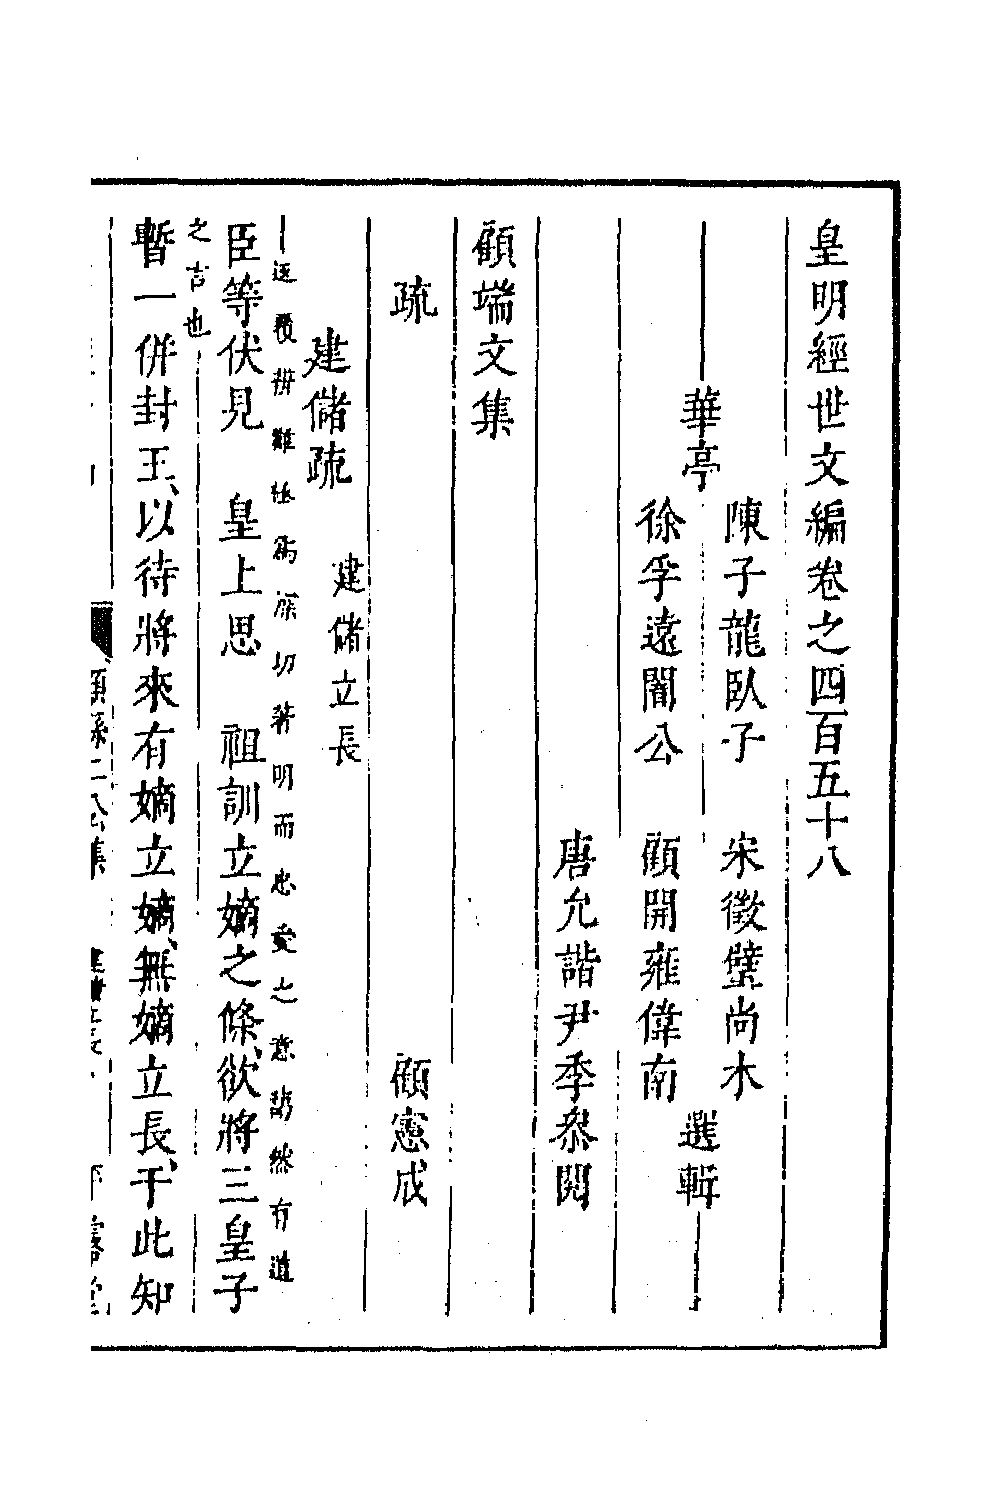 皇明經世文編卷之四百五十八
華亭
陳子龍臥子　宋徵璧尚木
徐孚遠闇公　顧開雍偉南
選輯
唐允諧尹季叅閱
顧端文集
疏　顧憲成
建儲疏　建儲立長
一返覆辨難極爲深切著明而忠愛之意藹然有道
臣等伏見　皇上思　祖訓立嫡之條、欲將三皇子
之言也
暫一併封王、以待將來有嫡立嫡、無嫡立長、于此知
顧孫二公集　建儲立長　平露堂